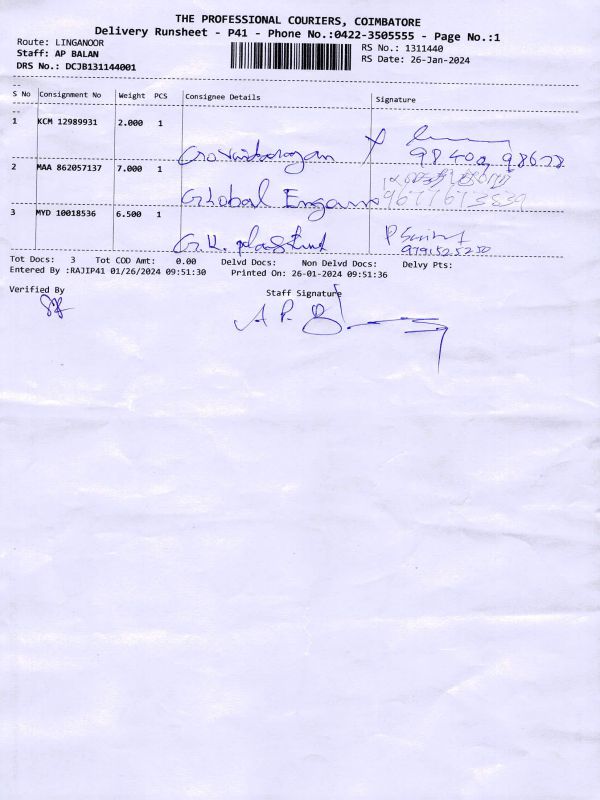 THE PROFESSIONAL COURIERS, COIMBATORE
Delivery Runsheet - P41 - Phone No.:0422-3505555 - Page No.:1
Route: LINGANOOR
Staff: AP BALAN
DRS No.: DCJB131144001
RS No.: 1311440
RS Date: 26-Jan-2024
S No Consignment No Weight PCS Consignee Details Signature
1 KCM 12989931 2.000 1
2 MAA 862057137 7.000 1 Global
9677613839
3 MYD 10018536 6.500 1 G.K.
9791525250
Tot Docs: 3 Tot COD Amt: 0.00 Delvd Docs: Non Delvd Docs: Delvy Pts:
Entered By :RAJIP41 01/26/2024 09:51:30 Printed On: 26-01-2024 09:51:36
Verified By Staff Signature
A P.